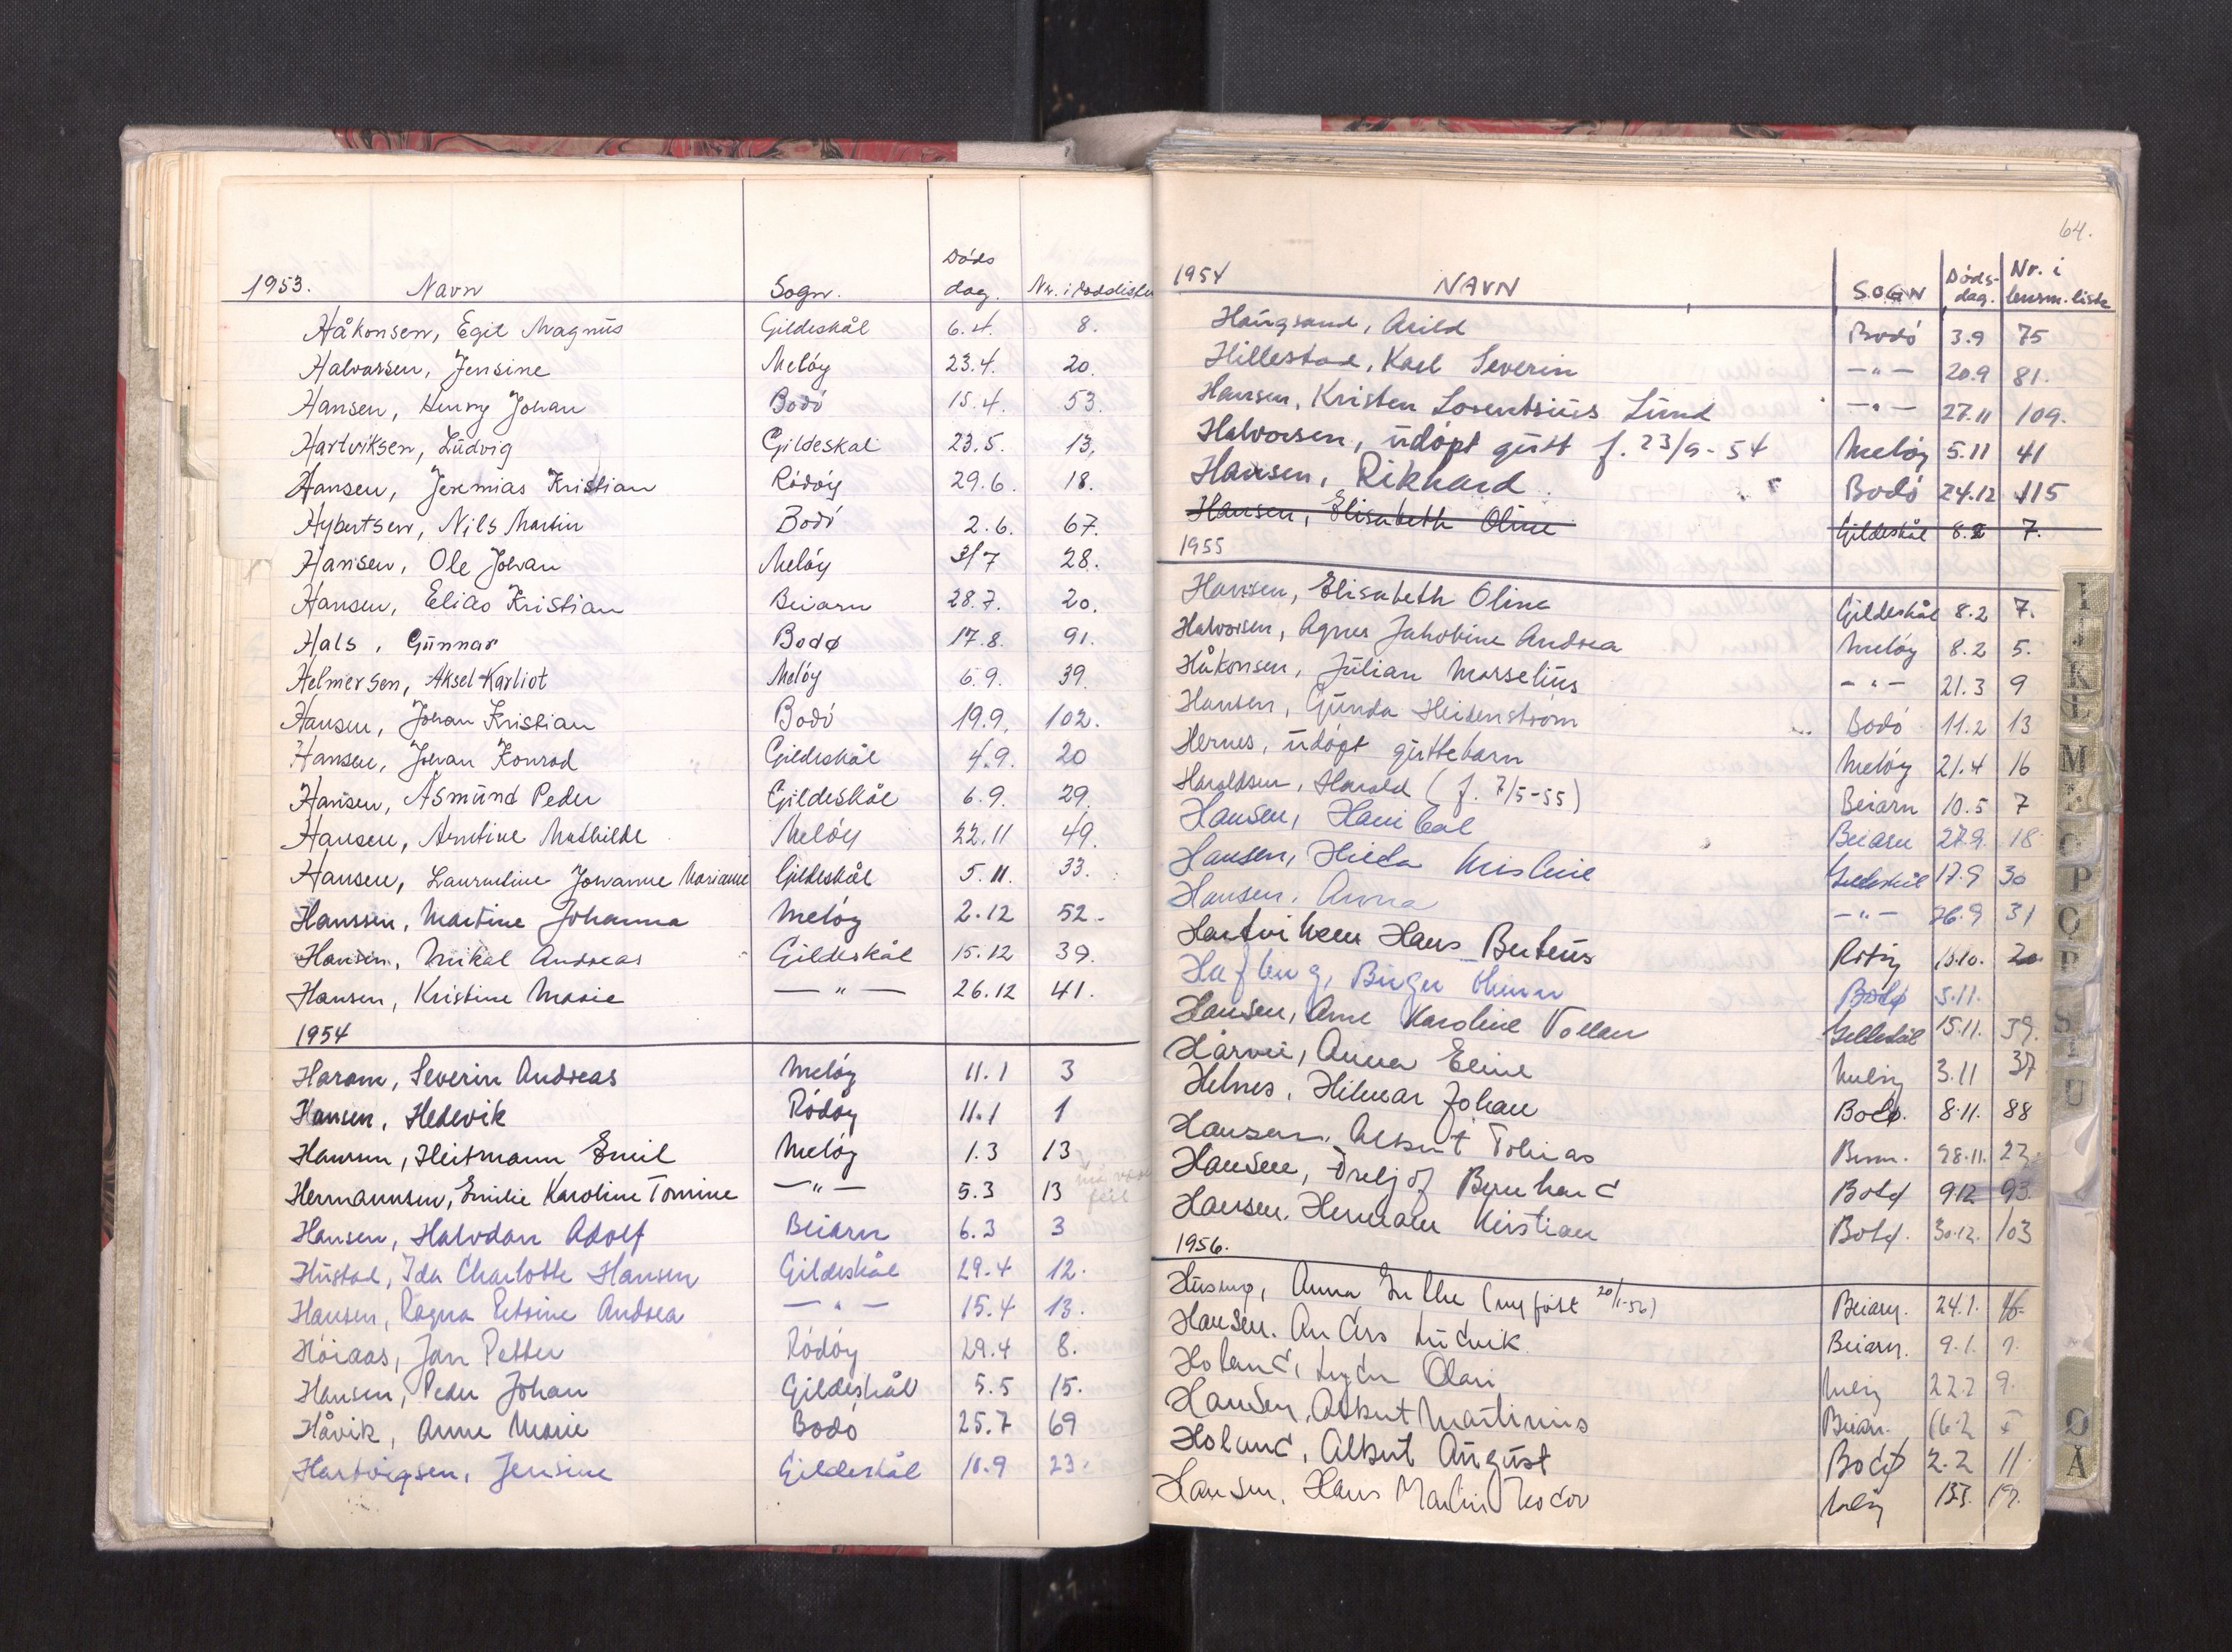 1953. Navn Sogn. Døds dag. Nr. i
Håkonsen, Egil Magnus Gildeskål 6.4. 8.
Halvorsen, Jensine Meløy 23.4. 20.
Hansen, Henry Johan Bodø 15.4. 53.
Hartviksen, Ludvig Gildeskål 23.5. 13,
Hansen, Jeremias Kristian Rödöy 29.6. 18.
Hybertsen, Nils Martin Bodö 2.6. 67.
Hansen, Ole Johan Melöy 3/7 28.
Hansen, Elias Kristian Beiarn 28.7. 20.
Hals, Gunnar Bodø 17.8. 91.
Helmersen, Aksel Karliot Meløy 6.9. 39.
Hansen, Johan Kristian Bodö 19.9. 102.
Hansen, Johan Konrad Gildeskål 4.9. 20
Hansen, Åsmund Peder Gildeskål 6.9. 29.
Hansen, Arntine Mathilde Meløy 22.11 49.
Hansen, Laurentine Johanne Marianne Gildeskål 5.11. 33.
Hanssen, Martine Johanna Meløy 2.12 52.
Hansen, Mikal Andreas Gildeskål 15.12 39.
Hansen, Kristine Marie — " — 26.12 41.
1954
Haram, Severin Andreas Meløy 11.1 3
Hansen, Hedevik Rödöy 11.1 1
Hansen, Heitmann Emil Meløy 1.3 13
Hermannsen, Emilie Karoline Tomine — " — 5.3 13 må være feil
Hansen, Halvdan Adolf Beiarn 6.3 3
Hustad, Ida Charlotte Hansen Gildeskål 29.4 12.
Hansen, Ragna Petrine Andrea — " — 15.4 13.
Höiaas, Jan Petter Rödöy 29.4 8.
Hansen, Peder Johan Gildeskål 5.5 15.
Håvik, Anne Marie Bodö 25.7 69
Hartvigsen, Jensine Gildeskål 10.9 23.
64.
1954 NAVN SOGN Döds-dag. Nr. i lensm. liste
Haugsand, Arild Bodö 3.9 75
Hillestad, Karl Severin — " — 20.9 81.
Hansen, Kristen Lorentsius Lund — " — 27.11 109.
Halvorsen, udöpt gutt f. 23/9-54 Melöy 5.11 41
Hansen, Rikhard Bodö 24.12 115
Hansen, Elisabeth Oline Gildeskål 8.2 7.
1955
Hansen, Elisabeth Oline Gildeskål 8.2 7.
Halvorsen, Agnes Jakobine Andrea Melöy 8.2 5.
Håkonsen, Julian Marselius — " — 21.3 9
Hansen, Gunda Heidenström Bodö 11.2 13
Hernes, udöpt guttebarn Melöy 21.4 16
Haraldsen, Harald (f. 7/5-55) Beiarn 10.5 7
Hansen, Hanibal Beiarn 27.9. 18
Hansen, Hilda Kristine Gildeskål 17.9 30
Hansen, Anna — " — 26.9 31
Hartviksen Hans Berteus 15.10. 20
Birger Bodø 5.11.
Hansen, Arne Karoline Vollan Gildeskål 15.11. 39.
Anna Eline Meløy 3.11 37
Helnes, Hilmar Johan Bodø. 8.11. 88
Hansen, Albert Tobias 28.11. 22.
Hansen, Bernhard Bodø 9.12 93.
Hansen, Hermann Kristian Bodø. 30.12. 103
1956.
Husmo, Anna Grethe 20/1-56) Beiarn. 24.1.
Hansen. Anders Ludvik Beiarn. 9.1.
Holand, Olari Meløy 22.2 9.
Hansen, Albert Martinius Beiarn. 16.2
Holand, Albert August Bodø 2.2 11.
Hansen, Hans Martin Meløy
I J K L M N O P S T U Ø Å